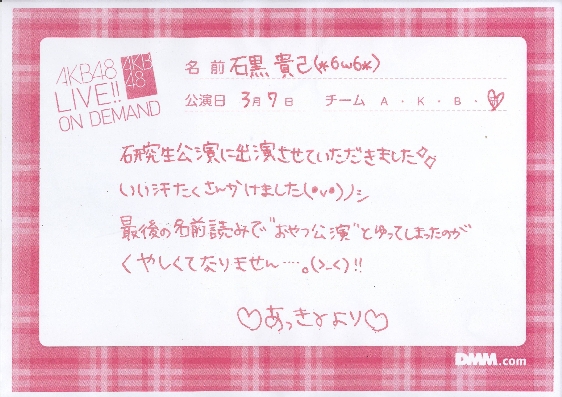 AKB48
LIVE!!
ON DEMAND
AKB
48
名前 石黒 貴己(*6ω6*)
公演日 3月7日 チーム A・K・B・研
研究生公演に出演させていただきました
いい汗たくさんかけました(•v•)ノシ
最後の名前読みで"おやつ公演"とゆってしまったのが
くやしくてなりません…。(>_<)!!
♡あっきょより♡
DMM.com